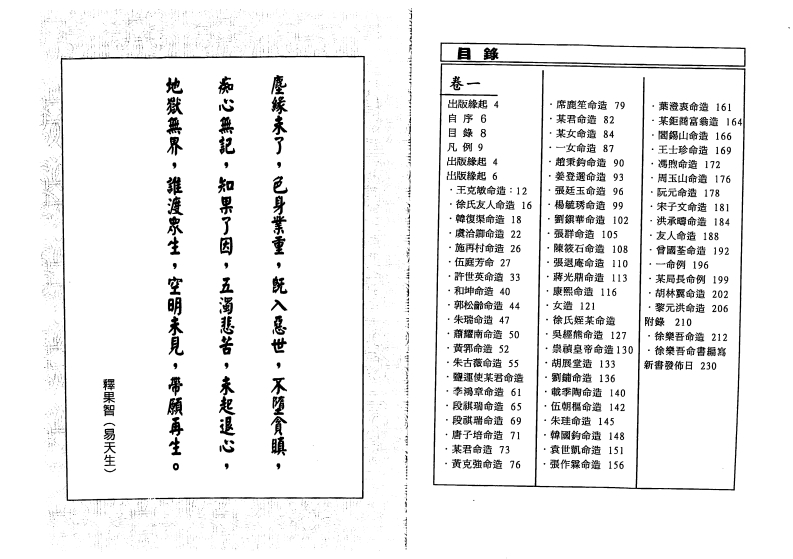 塵緣未了，色身業重，既入惡世，不墮貪瞋，
痴心無記，知果了因，五濁悲苦，未起退心，
地獄無界，誰渡眾生，空明未見，帶願再生。
釋果智（易天生）
目錄
卷一
出版緣起 4
自 序 6
目 錄 8
凡 例 9
出版緣起 4
出版緣起 6
·王克敏命造：12
·徐氏友人命造 16
·韓復榘命造 18
·虞洽卿命造 22
·施再村命造 26
·伍庭芳命 27
·許世英命造 33
·和坤命造 40
·郭松齡命造 44
·朱瑞命造 47
·蕭耀南命造 50
·黃郛命造 52
·朱古薇命造 55
·鹽運使某君命造
·李鴻章命造 61
·段祺瑞命造 65
·段祺瑞命造 69
·唐子培命造 71
·某君命造 73
·黃克強命造 76
·席鹿笙命造 79
·某君命造 82
·某女命造 84
·一女命造 87
·趙秉鈞命造 90
·姜登選命造 93
·張廷玉命造 96
·楊毓琇命造 99
·劉鎮華命造 102
·張群命造 105
·陳筱石命造 108
·張退庵命造 110
·蔣光鼎命造 113
·康熙命造 116
·女造 121
·徐氏姪某命造
·吳經熊命造 127
·崇禎皇帝命造130
·胡展堂造 133
·劉鏞命造 136
·載季陶命造 140
·伍朝樞命造 142
·朱珪命造 145
·韓國鈞命造 148
·袁世凱命造 151
·張作霖命造 156
·葉澄衷命造 161
·某鉅商富翁造 164
·閻錫山命造 166
·王士珍命造 169
·馮煦命造 172
·周玉山命造 176
·阮元命造 178
·宋子文命造 181
·洪承疇命造 184
·友人命造 188
·曾國荃命造 192
·一命例 196
·某局長命例 199
·胡林翼命造 202
·黎元洪命造 206
附錄 210
·徐樂吾命造 212
·徐樂吾命書編寫
新書發佈日 230